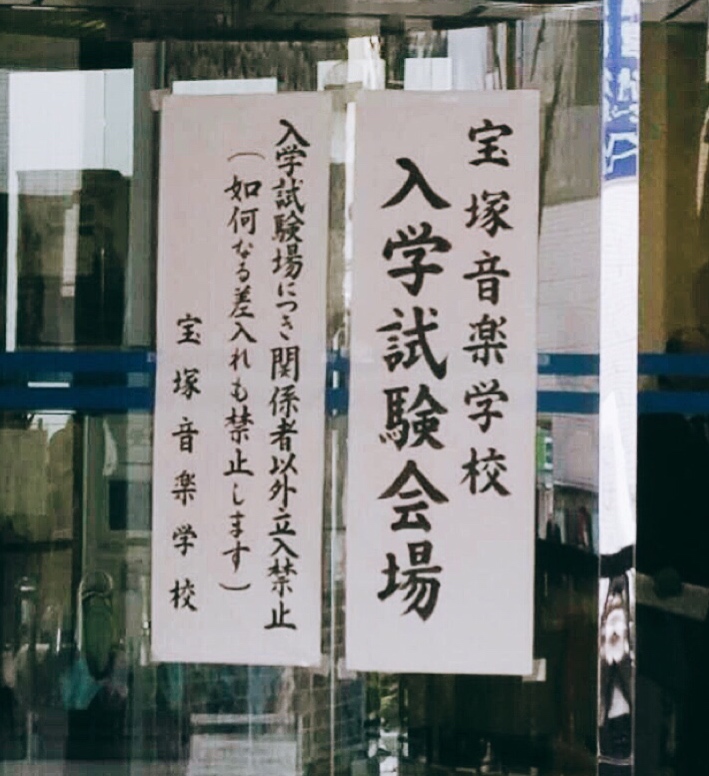 宝塚音楽学校
入学試験会場
入学試験場につき関係者以外立入禁止
（如何なる差入れも禁止します）
宝塚音楽学校